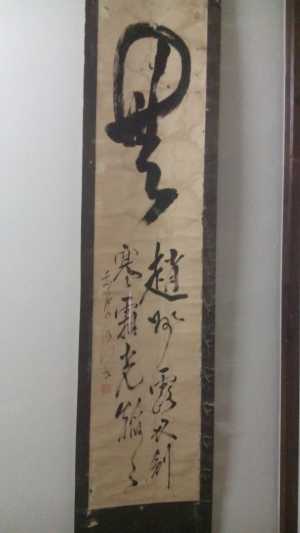 無
趙州露刃剣
寒霜光燄々